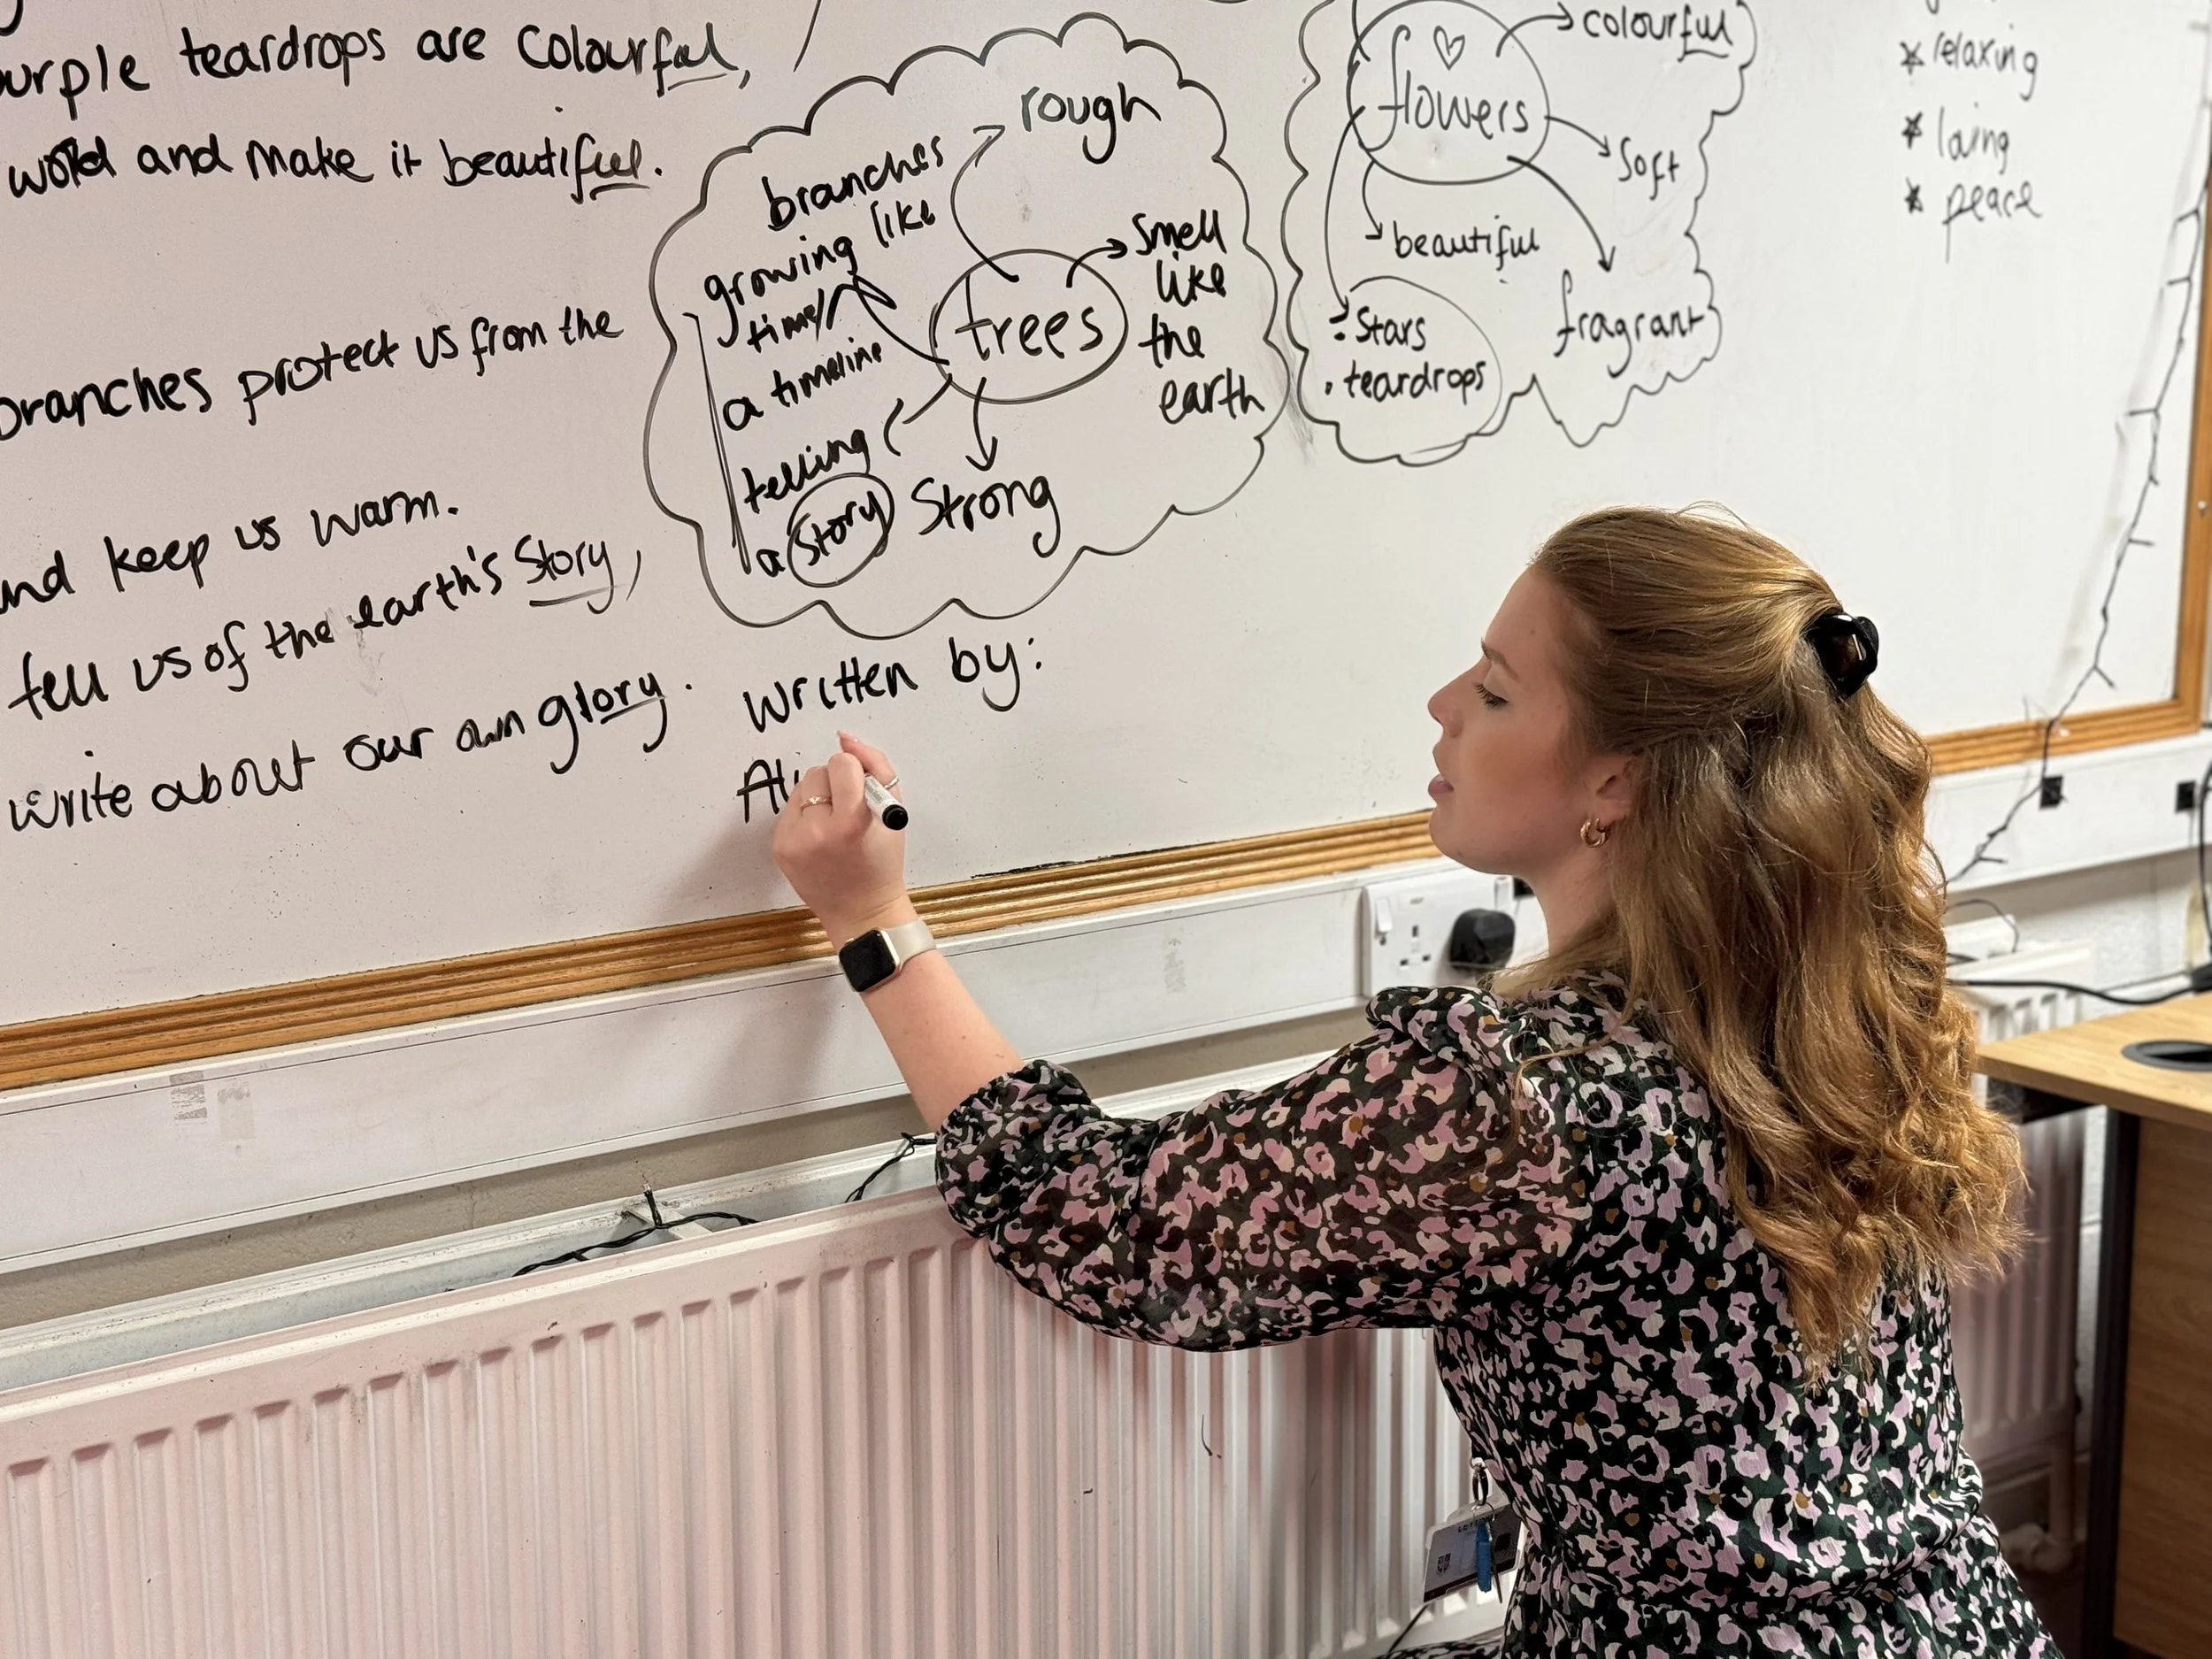 purple teardrops are colourful,
world and make it beautiful.
branches protect us from the
and keep us warm.
tell us of the earth's story,
write about our own glory.
trees
rough
branches
growing like
time/
a timeline
telling
a story
strong
smell
like
the
earth
written by:
flowers
colourful
soft
fragrant
beautiful
stars
teardrops
relaxing
peace